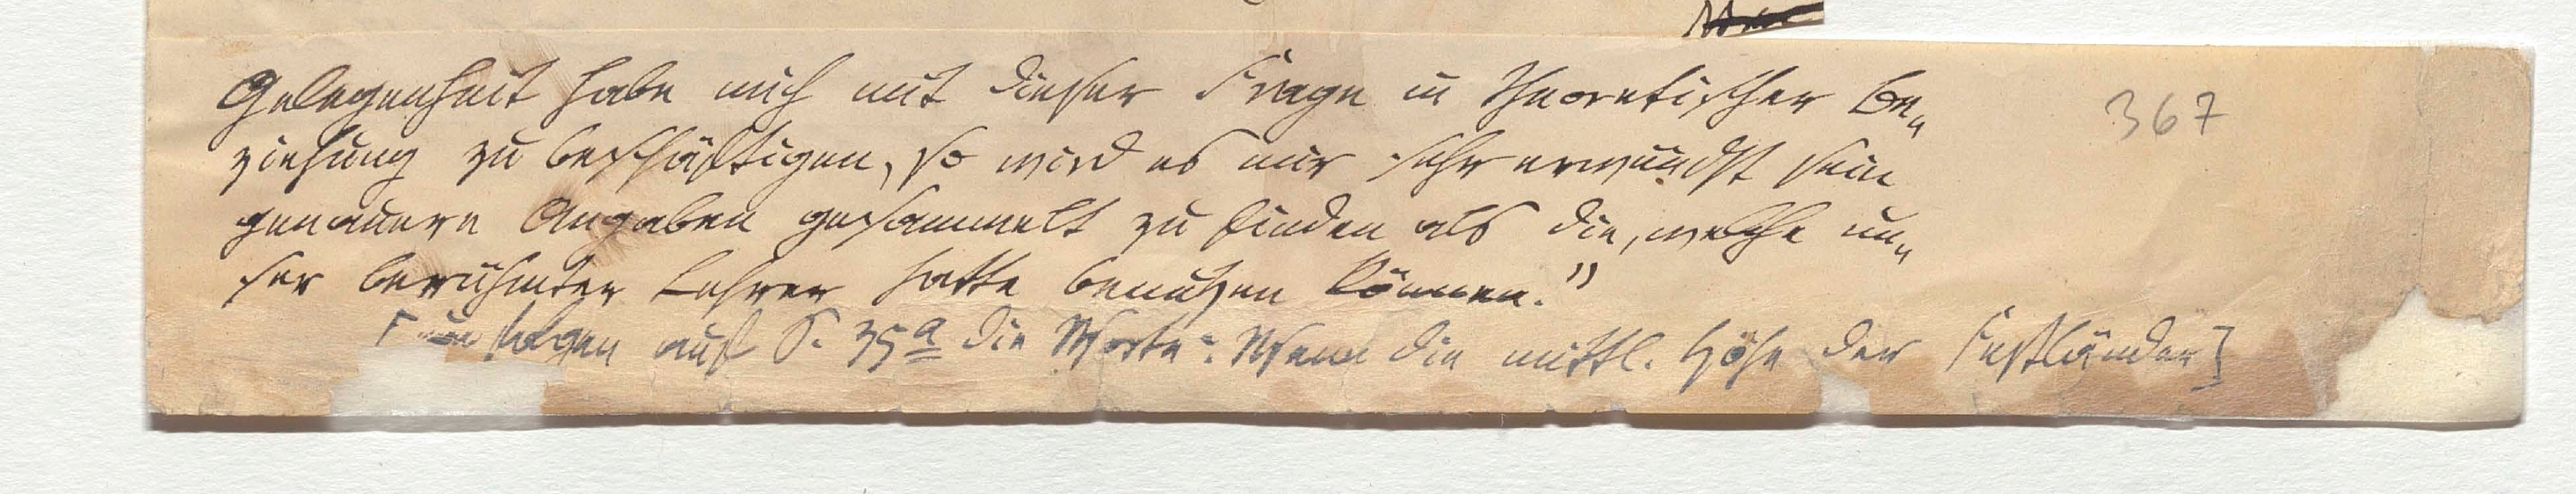 Gelegenheit habe mich mit dieser Frage in theoretischer Be„
ziehung zu beschäftigen, so wird es mir sehr erwündst sein
genauere Angaben gesammelt zu finden als die, welche un„
ser berühmter Lehrer hatte benutzen können."
[nun folgen auf S. 35a die Worte: Wenn die mittl. Höhe der Festländer]
367